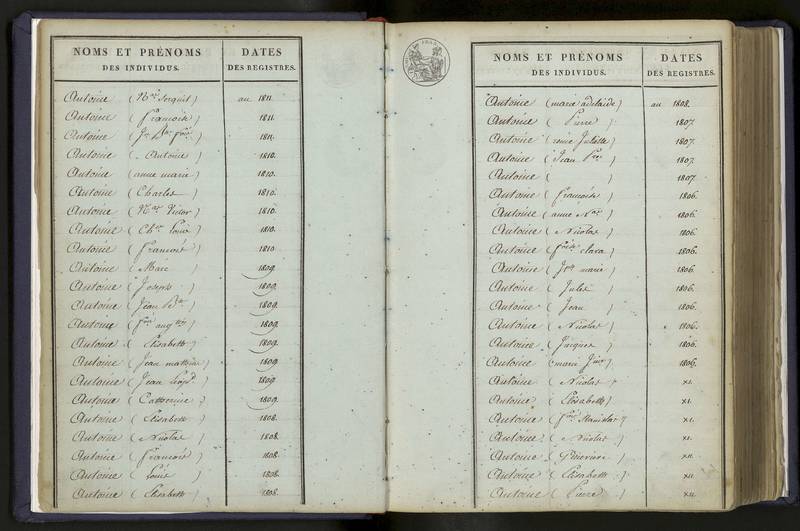 NOMS ET PRÉNOMS
DES INDIVIDUS.
DATES
DES REGISTRES.
Antoine ( ) an 1811.
Antoine (François) 1811.
Antoine ( ) 1811.
Antoine (Antoine) 1810.
Antoine (anne marie) 1810.
Antoine (Charles) 1810.
Antoine (Nas Victor) 1810.
Antoine (Ch. Louis) 1810.
Antoine (François) 1810
Antoine (Marc) 1809.
Antoine (Joseph) 1809.
Antoine (Jean Bte) 1809.
Antoine ( ) 1809.
Antoine (Elisabeth) 1809.
Antoine (Jean mathieu) 1809
Antoine (Jean Leopd) 1809.
Antoine (Catherine) 1809.
Antoine (Elisabeth) 1808.
Antoine (Nicolas) 1808.
Antoine (François) 1808.
Antoine (Louis) 1808.
Antoine (Elisabeth) 1808.
NOMS ET PRÉNOMS
DES INDIVIDUS.
DATES
DES REGISTRES.
Antoine (marie adelaide) an 1808.
Antoine (Pierre) 1807.
Antoine (reine Juliette) 1807.
Antoine (Jean ) 1807.
Antoine ( ) 1807
Antoine (François) 1806.
Antoine (anne ) 1806.
Antoine (Nicolas) 1806.
Antoine ( clara) 1806.
Antoine ( marie) 1806.
Antoine (Julie) 1806.
Antoine (Jean) 1806.
Antoine (Nicolas) 1806.
Antoine (Jacques) 1806.
Antoine (marie ) 1806.
Antoine (Nicolas) xi.
Antoine (Elisabeth) xi.
Antoine ( Stanislas) xi.
Antoine (Nicolas) xi.
Antoine ( ) xii.
Antoine (Elisabeth) xii.
Antoine (Pierre) xii.